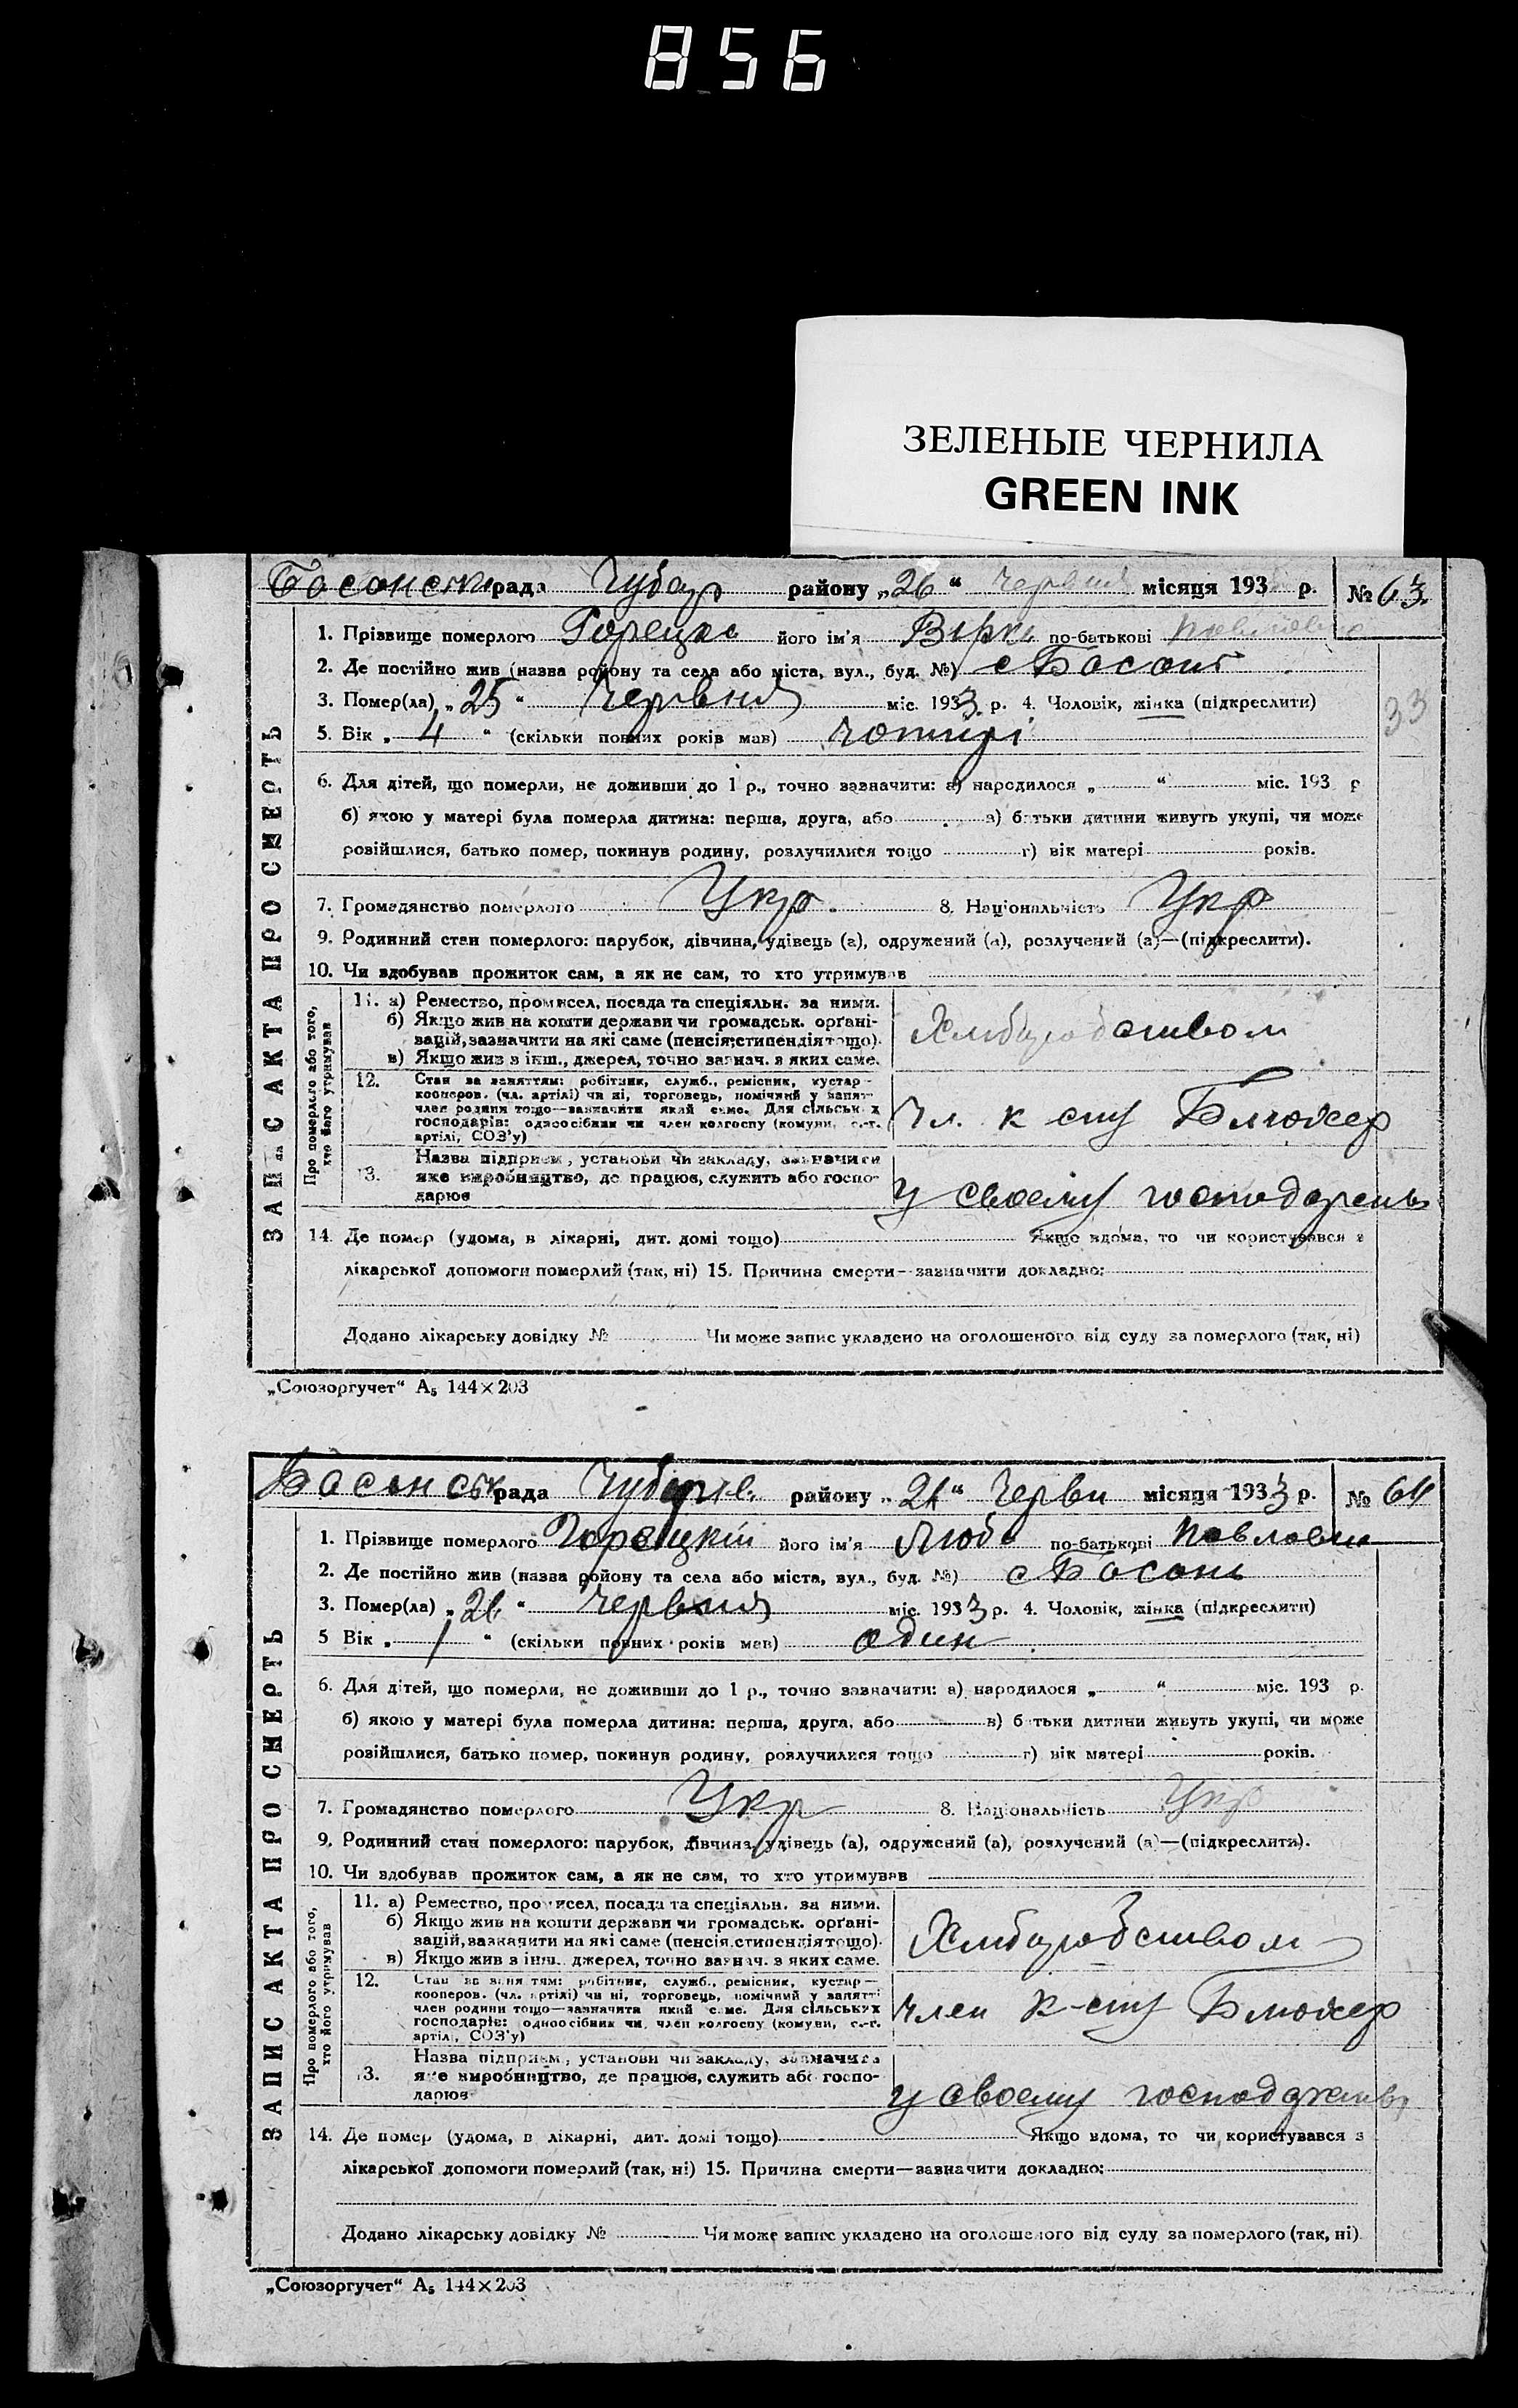 856
ЗЕЛЕНЫЕ ЧЕРНИЛА
GREEN INK
Басанськ рада Чубар району „26“ червня місяця 193 р. № 63.
1. Прізвище померлого Горецка його ім'я Вірка по-батькові Павловна
2. Де постійно жив (назва району та села або міста, вул., буд. №) с Басань
3. Помер(ла) „25“ Червня міс. 1933. р. 4. Чоловік, жінка (підкреслити)
33
5. Вік „4“ (скільки повних років мав) чотирі
6. Для дітей, що померли, не доживши до 1 р., точно зазначити: а) народилося „ “ міс. 193 р
б) якою у матері була померла дитина: перша, друга, або в) батьки дитини живуть укупі, чи може
розійшлися, батько помер, покинув родину, розлучилися тощо г) вік матері років.
7. Громадянство померлого Укр. 8. Національність Укр
9. Родинний стан померлого: парубок, дівчина, удівець (а), одружений (а), розлучений (а)—(підкреслити).
10. Чи здобував прожиток сам, а як не сам, то хто утримував
ЗАПИС АКТА ПРО СМЕРТЬ
Про померлого або того, хто його утримував
11. а) Ремество, промисел, посада та спеціяльн. за ними.
б) Якщо жив на кошти держави чи громадськ. орґані-
зацій, зазначити на які саме (пенсія, стипендія тощо).
в) Якщо жив з інш., джерел, точно зазнач. з яких саме.
Хлибаробством
12. Стан за заняттям: робітник, служб., ремісник, кустар—
кооперов. (чл. артілі) чи ні, торговець, помічний у занят-
член родини тощо—зазначити який саме. Для сільськ х
господарів: одноосібник чи член колгоспу (комуни, с.-г.
артілі, СОЗ'у)
Чл. к спу Блюхер
13. Назва підприєм., установи чи закладу, зазначити
яке виробництво, де працює, служить або госпо-
дарює
у своему господарств
14. Де помер (удома, в лікарні, дит. домі тощо) Якщо вдома, то чи користувався з
лікарської допомоги померлий (так, ні) 15. Причина смерти—зазначити докладно:
Додано лікарську довідку № Чи може запис укладено на оголошеного від суду за померлого (так, ні)
„Союзоргучет“ А₅ 144×203
Басанськ рада Чубарів. району „26“ Черви місяця 1933 р. № 64
1. Прізвище померлого Горецкій його ім'я Люба по-батькові Павловна
2. Де постійно жив (назва району та села або міста, вул., буд. №) с Басань
3. Помер(ла) „26“ Червня міс. 1933 р. 4. Чоловік, жінка (підкреслити)
5 Вік „1“ (скільки повних років мав) один
6. Для дітей, що померли, не доживши до 1 р., точно зазначити: а) народилося „ “ міс. 193 р.
б) якою у матері була померла дитина: перша, друга, або в) батьки дитини живуть укупі, чи може
розійшлися, батько помер, покинув родину, розлучилися тощо г) вік матері років.
7. Громадянство померлого Укр 8. Національність Укр
9. Родинний стан померлого: парубок, дівчина, удівець (а), одружений (а), розлучений (а)—(підкреслити).
10. Чи здобував прожиток сам, а як не сам, то хто утримував
ЗАПИС АКТА ПРО СМЕРТЬ
Про померлого або того, хто його утримував
11. а) Ремество, промисел, посада та спеціяльн. за ними.
б) Якщо жив на кошти держави чи громадськ. орґані-
зацій, зазначити на які саме (пенсія, стипендія тощо).
в) Якщо жив з інш., джерел, точно зазнач. з яких саме.
Хлибаробством
12. Стан за заняттям: робітник, служб., ремісник, кустар—
кооперов. (чл. артілі) чи ні, торговець, помічний у занятті
член родини тощо—зазначити який саме. Для сільських
господарів: одноосібник чи член колгоспу (комуни, с.-г.
артілі, СОЗ'у)
член к-спу Блюхер
13. Назва підприєм., установи чи закладу, зазначити
яке виробництво, де працює, служить або госпо-
дарює
у своему господарств
14. Де помер (удома, в лікарні, дит. домі тощо) Якщо вдома, то чи користувався з
лікарської допомоги померлий (так, ні) 15. Причина смерти—зазначити докладно:
Додано лікарську довідку № Чи може запис укладено на оголошеного від суду за померлого (так, ні)
„Союзоргучет“ А₅ 144×203